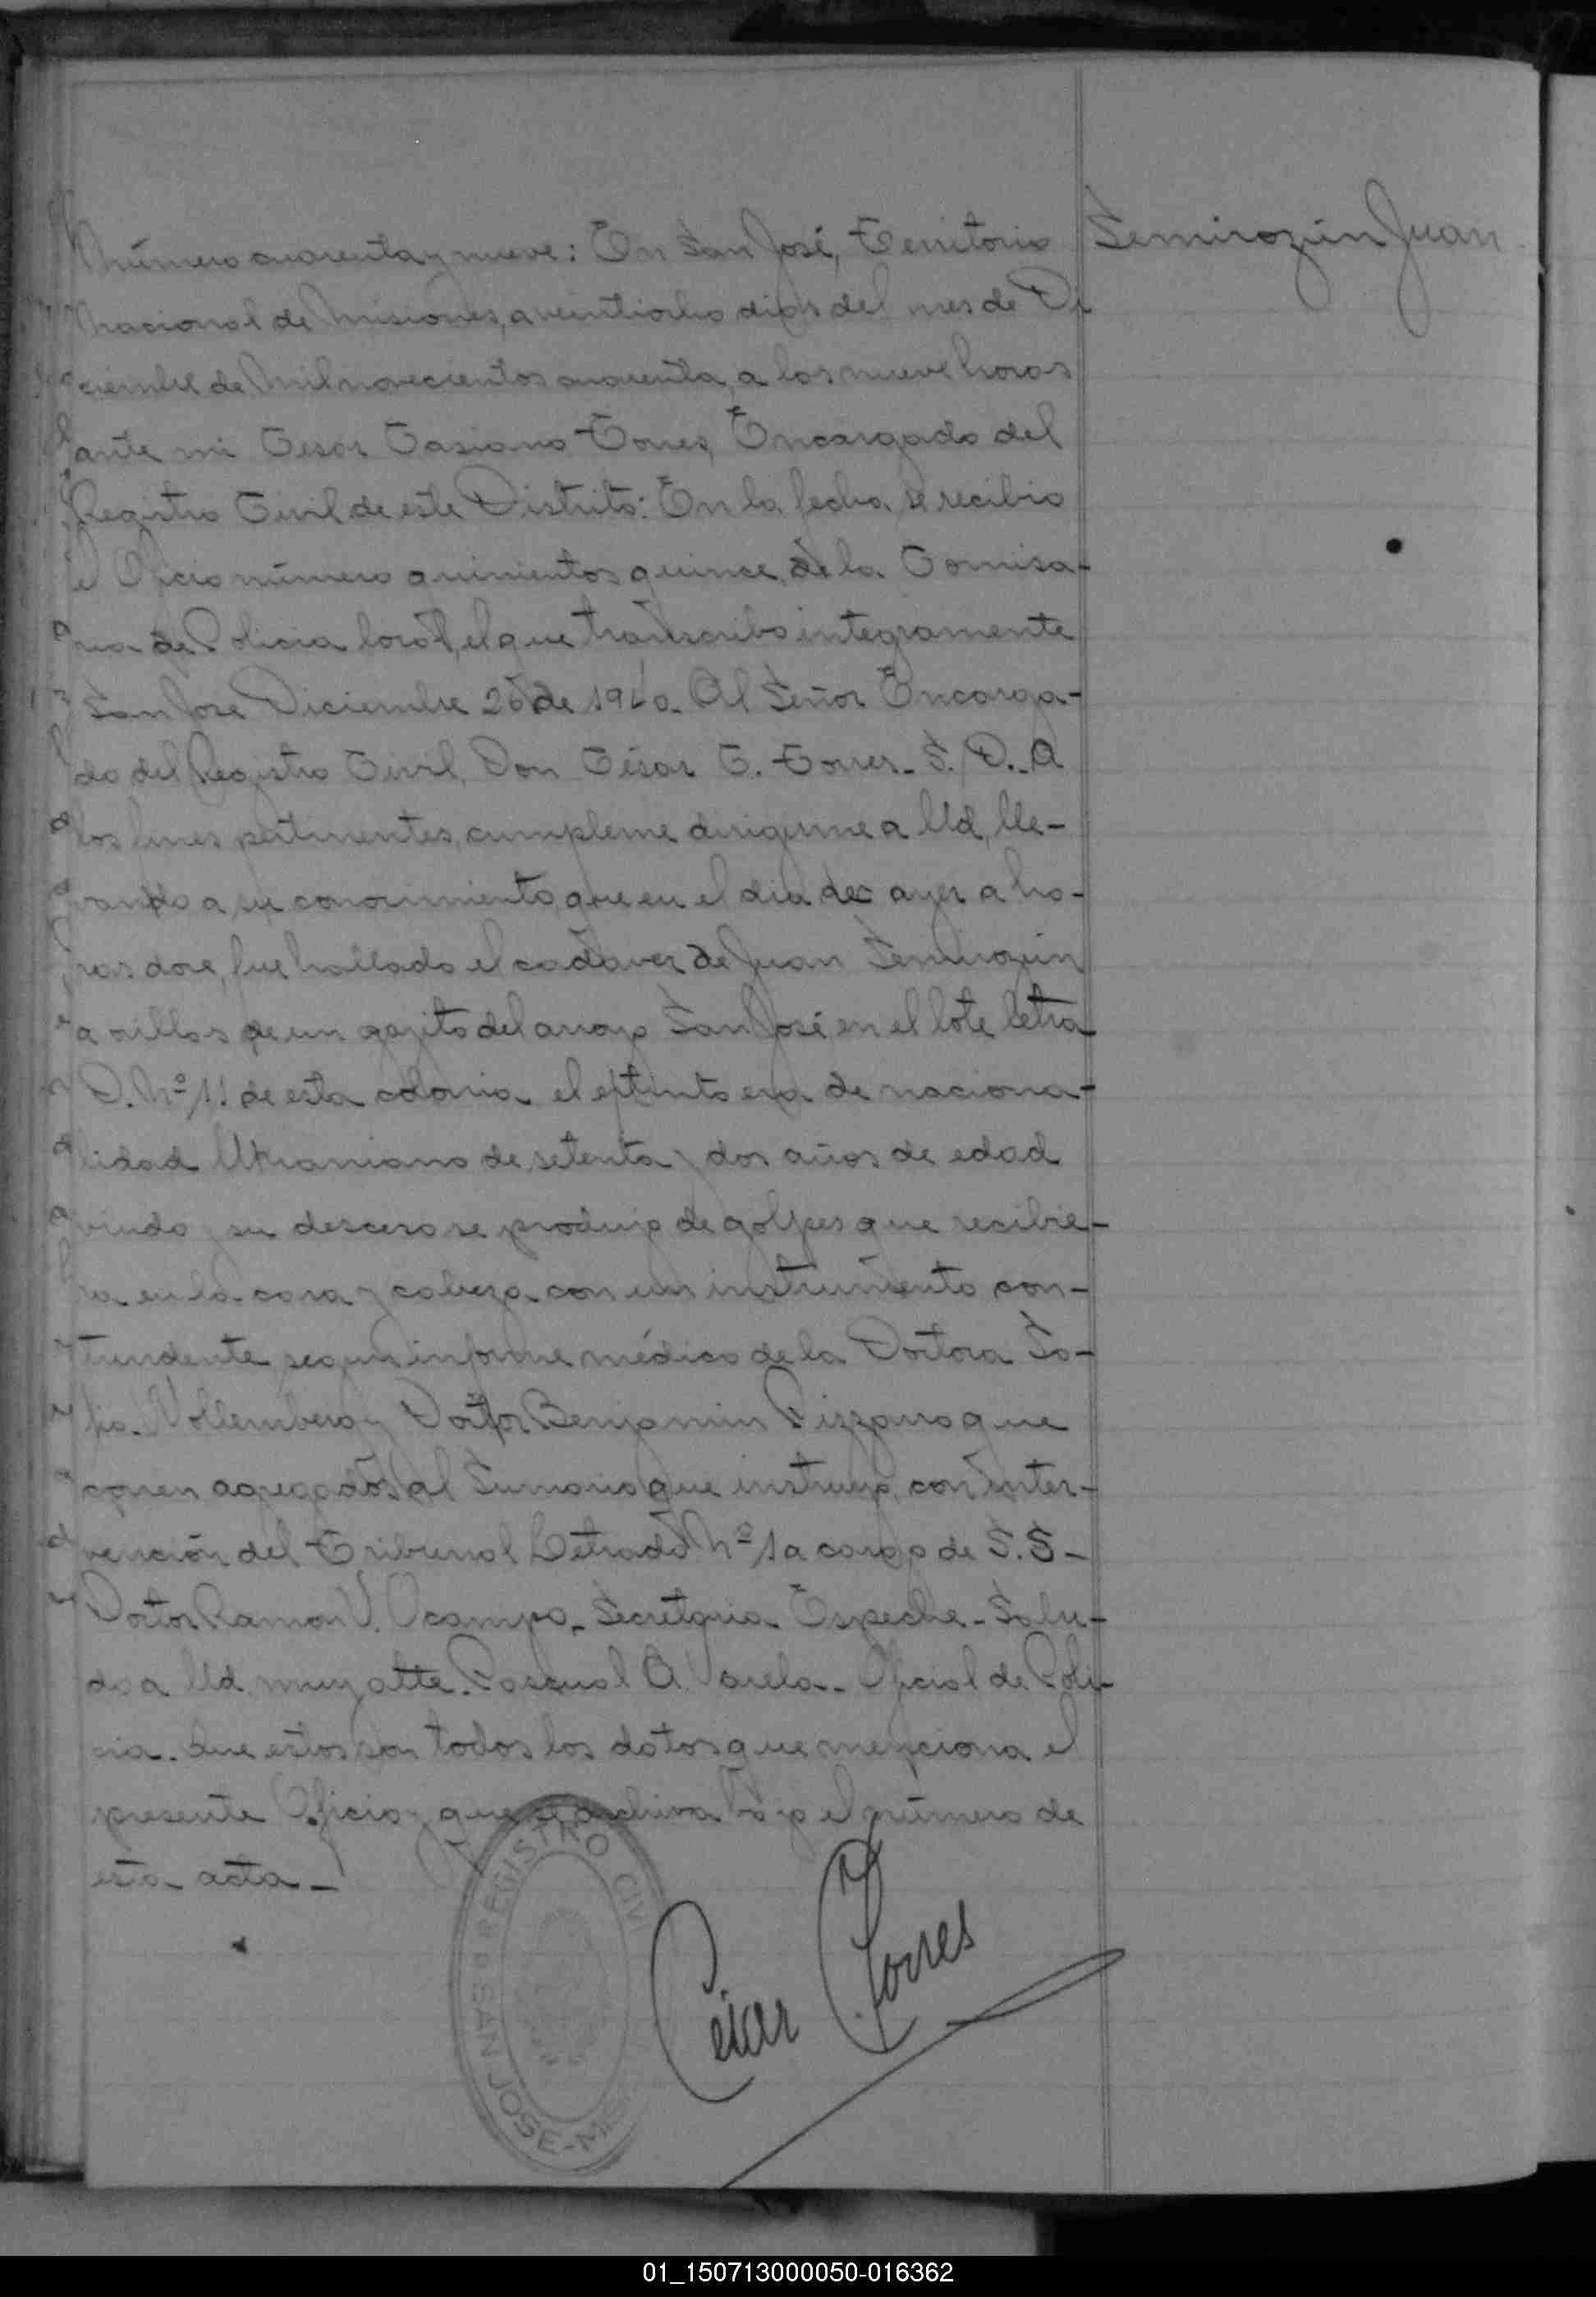 Semirozún Juan
Número cuarenta y nueve: En San José, Territorio
Nacional de Misiones, a veintiocho dias del mes de Di
ciembre de Mil novecientos cuarenta, a las nueve horas
ante mi Cesar Casiano Torres, Encargado del
Registro Civil de este Distrito: En la fecha se recibio
el Oficio número quinientos quince, de la Comisa-
ria de Policia local, el que transcribo integramente
San Jose Diciembre 26 de 1940. Al Señor Encarga-
do del Registro Civil, Don César C. Torres. S. D. A
los fines pertinentes, cumpleme dirigirme a Ud, lle-
vando a su conocimiento, que en el dia de ayer a ho-
ras doce, fue hallado el cadaver de Juan Semirozún
a orillas de un gajito del arroyo San José en el lote letra
D. Nº 11 de esta colonia el extinto era de naciona-
lidad Ukraniano de setenta y dos años de edad
viudo y su desceso se produjo de golpes que recibie-
ra en la cara y cabeza con un instrumento con-
tundente segun informe médico de la Doctora So-
fia Vollemberg y Doctor Benjamin Pizzarro que
corren agregados al Sumario que instruyo, con inter-
vención del Tribunal Letrado Nº 1 a cargo de S.S-
Doctor Ramon V. Ocampo. Secretaria Espeche - Salu-
do a Ud. muy atte. Pascual A. Varela - Oficial de Poli-
cia. Que estos son todos los datos que menciona el
presente Oficio y que se archiva bajo el número de
esta acta -
REGISTRO CIVI
SAN JOSE - MI
César C Torres
01_150713000050-016362